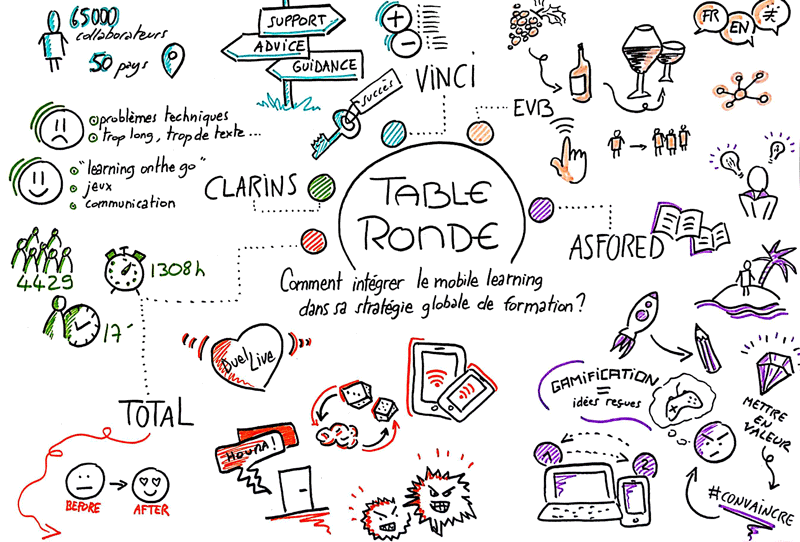 65000
collaborateurs
50 pays
SUPPORT
ADVICE
GUIDANCE
succès
VINCI
EVB
FR
EN
problèmes techniques
trop long, trop de texte...
"learning on the go"
jeux
communication
CLARINS
TABLE
RONDE
ASFORED
Comment intégrer le mobile learning
dans sa stratégie globale de formation?
4429
1308h
17'
Duel Live
TOTAL
BEFORE
AFTER
GAMIFICATION
=
idées reçues
METTRE
EN
VALEUR
#CONVAINCRE